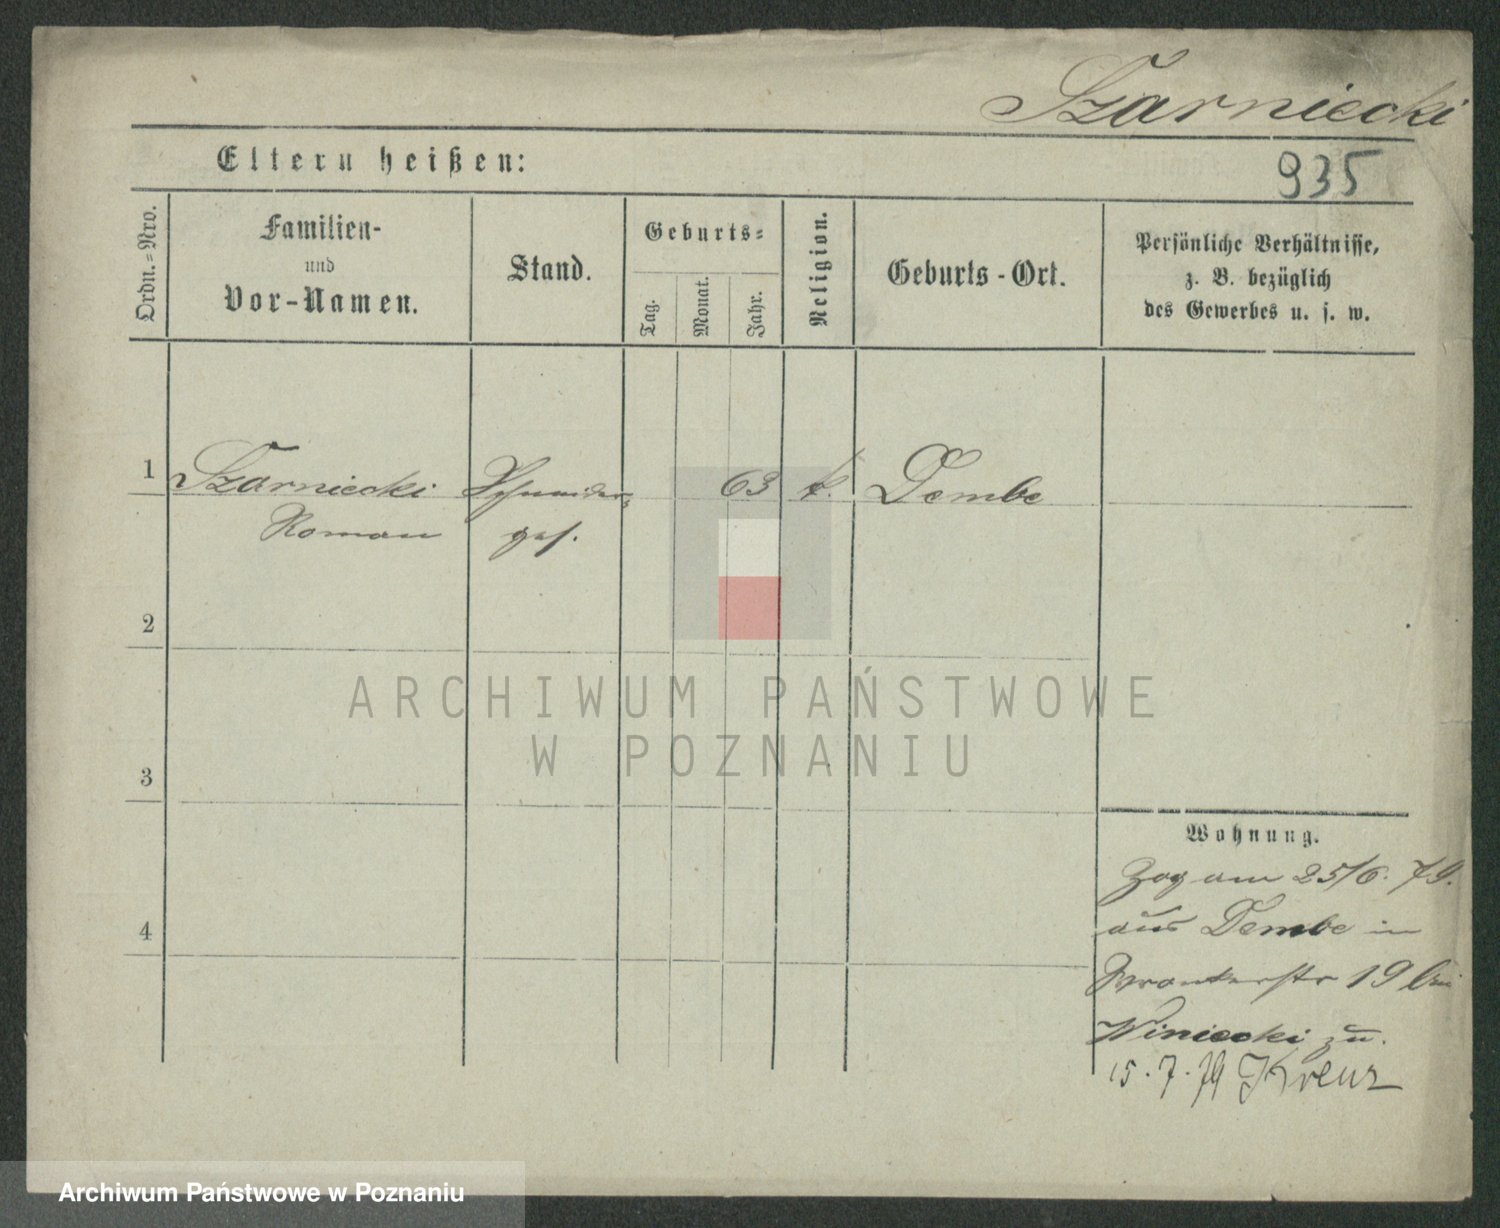 Szarniecki
Eltern heißen:
935
Ordn.-Nro.
Familien-
und
Vor-Namen.
Stand.
Geburts-
Tag.
Monat.
Jahr.
Religion.
Geburts-Ort.
Persönliche Verhältnisse,
z. B. bezüglich
des Gewerbes u. s. w.
1 Szarniecki Schneider- 63 k. Dembe
Roman ges.
2
3
4
Wohnung.
Zog am 25/6. 79.
aus Dembe in
19 bei
Winiecki zu.
15. 7. 79 Kreuz
ARCHIWUM PAŃSTWOWE
W POZNANIU
Archiwum Państwowe w Poznaniu